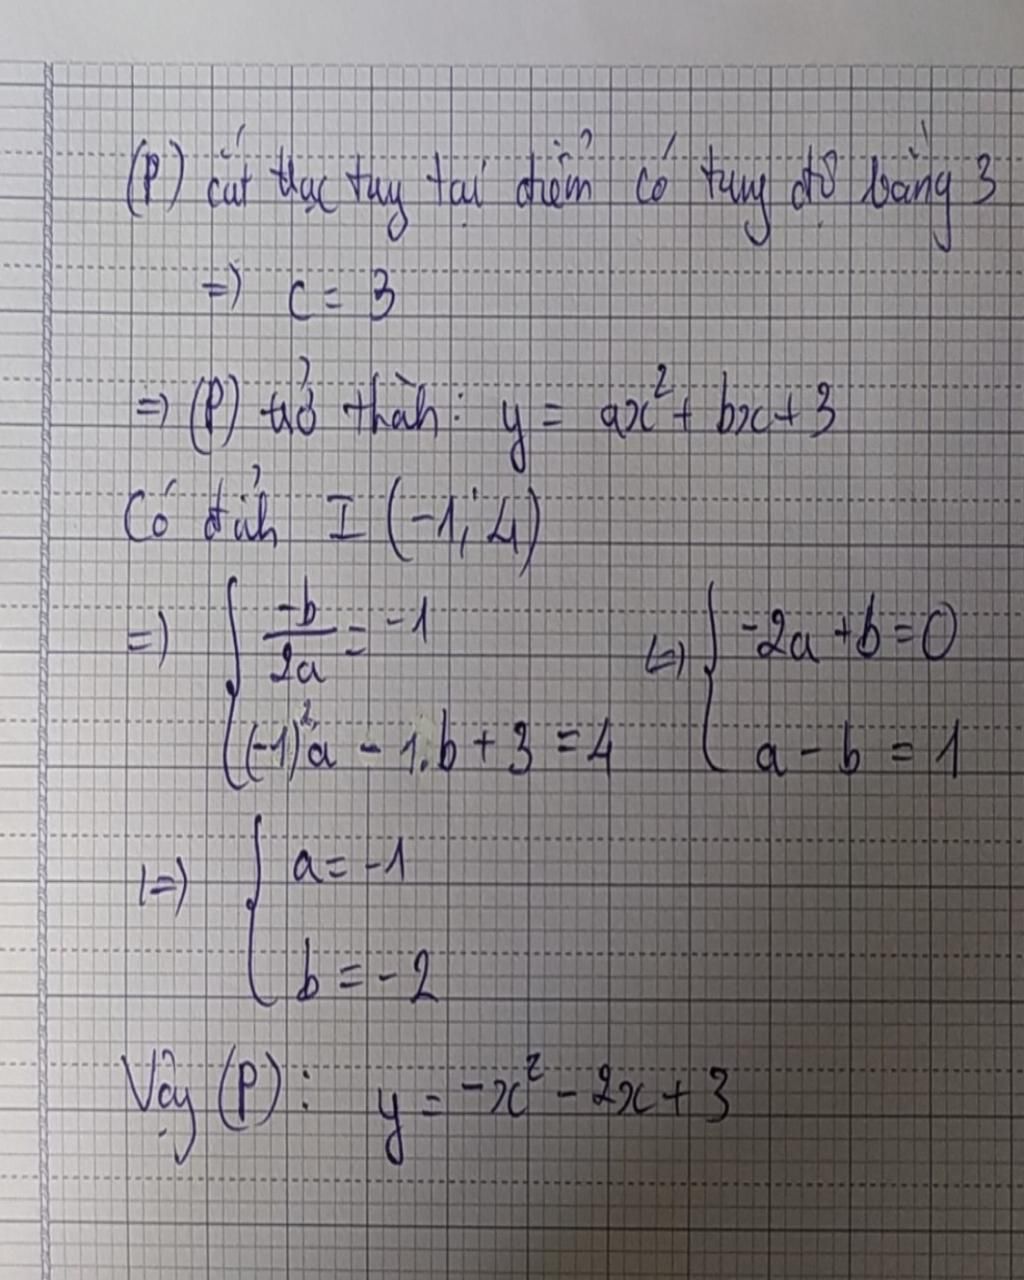 (P) cắt trục tung tại điểm có tung độ bằng 3
=> c = 3
=> (P) trở thành: y = ax² + bx + 3
Có đỉnh I (-1; 4)
=> { -b/2a = -1 <=> { -2a + b = 0
(-1)²a - 1.b + 3 = 4 a - b = 1
<=> { a = -1
b = -2
Vậy (P): y = -x² - 2x + 3